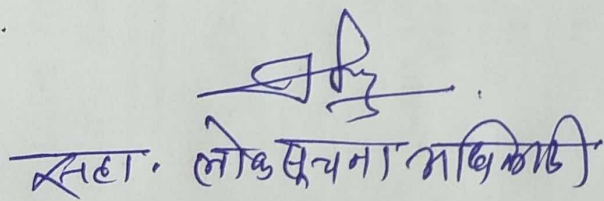 सहा. लोक सूचना अधिकारी